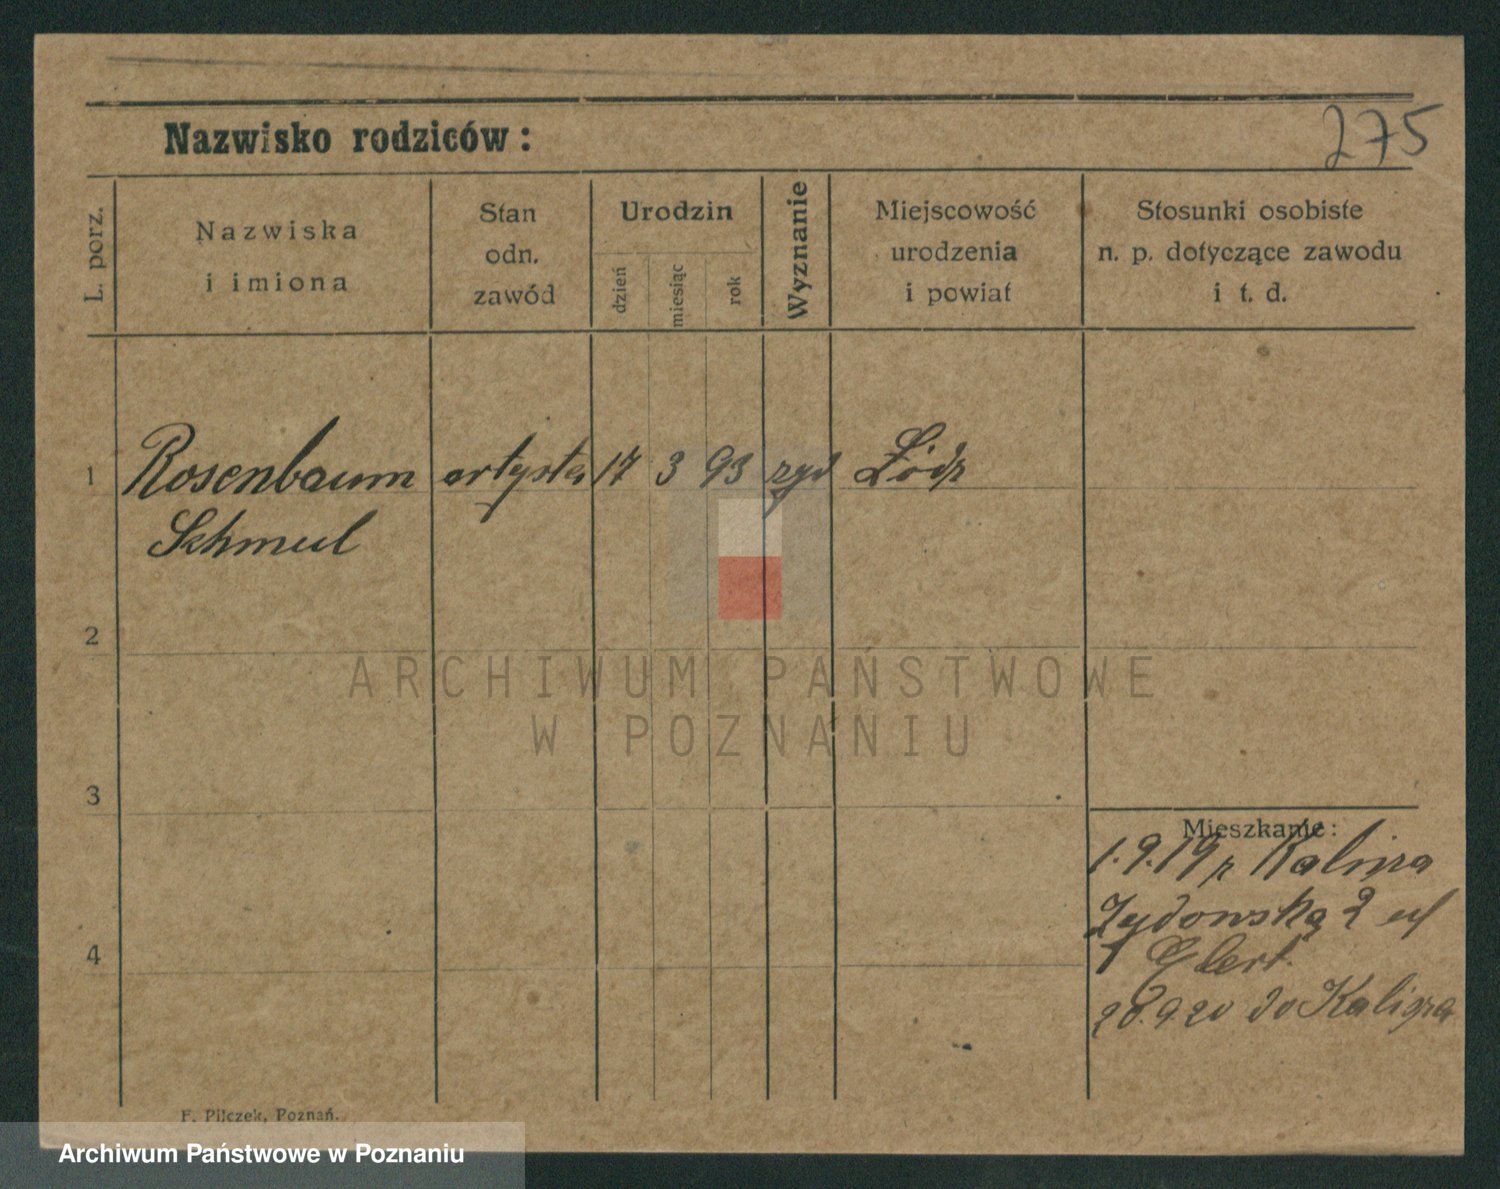 Nazwisko rodziców:
275
L. porz.
Nazwiska
i imiona
Stan
odn.
zawód
Urodzin
dzień
miesiąc
rok
Wyznanie
Miejscowość
urodzenia
i powiat
Stosunki osobiste
n. p. dotyczące zawodu
i t. d.
1 Rosenbaum artysta 17 3 93 żyd Łódź
Schmul
2
ARCHIWUM PAŃSTWOWE
W POZNANIU
3
4
Mieszkanie:
1.9.19 z Kalisza
Żydowska 2 
28.9.20 do Kalisza
F. Pilczek, Poznań.
Archiwum Państwowe w Poznaniu